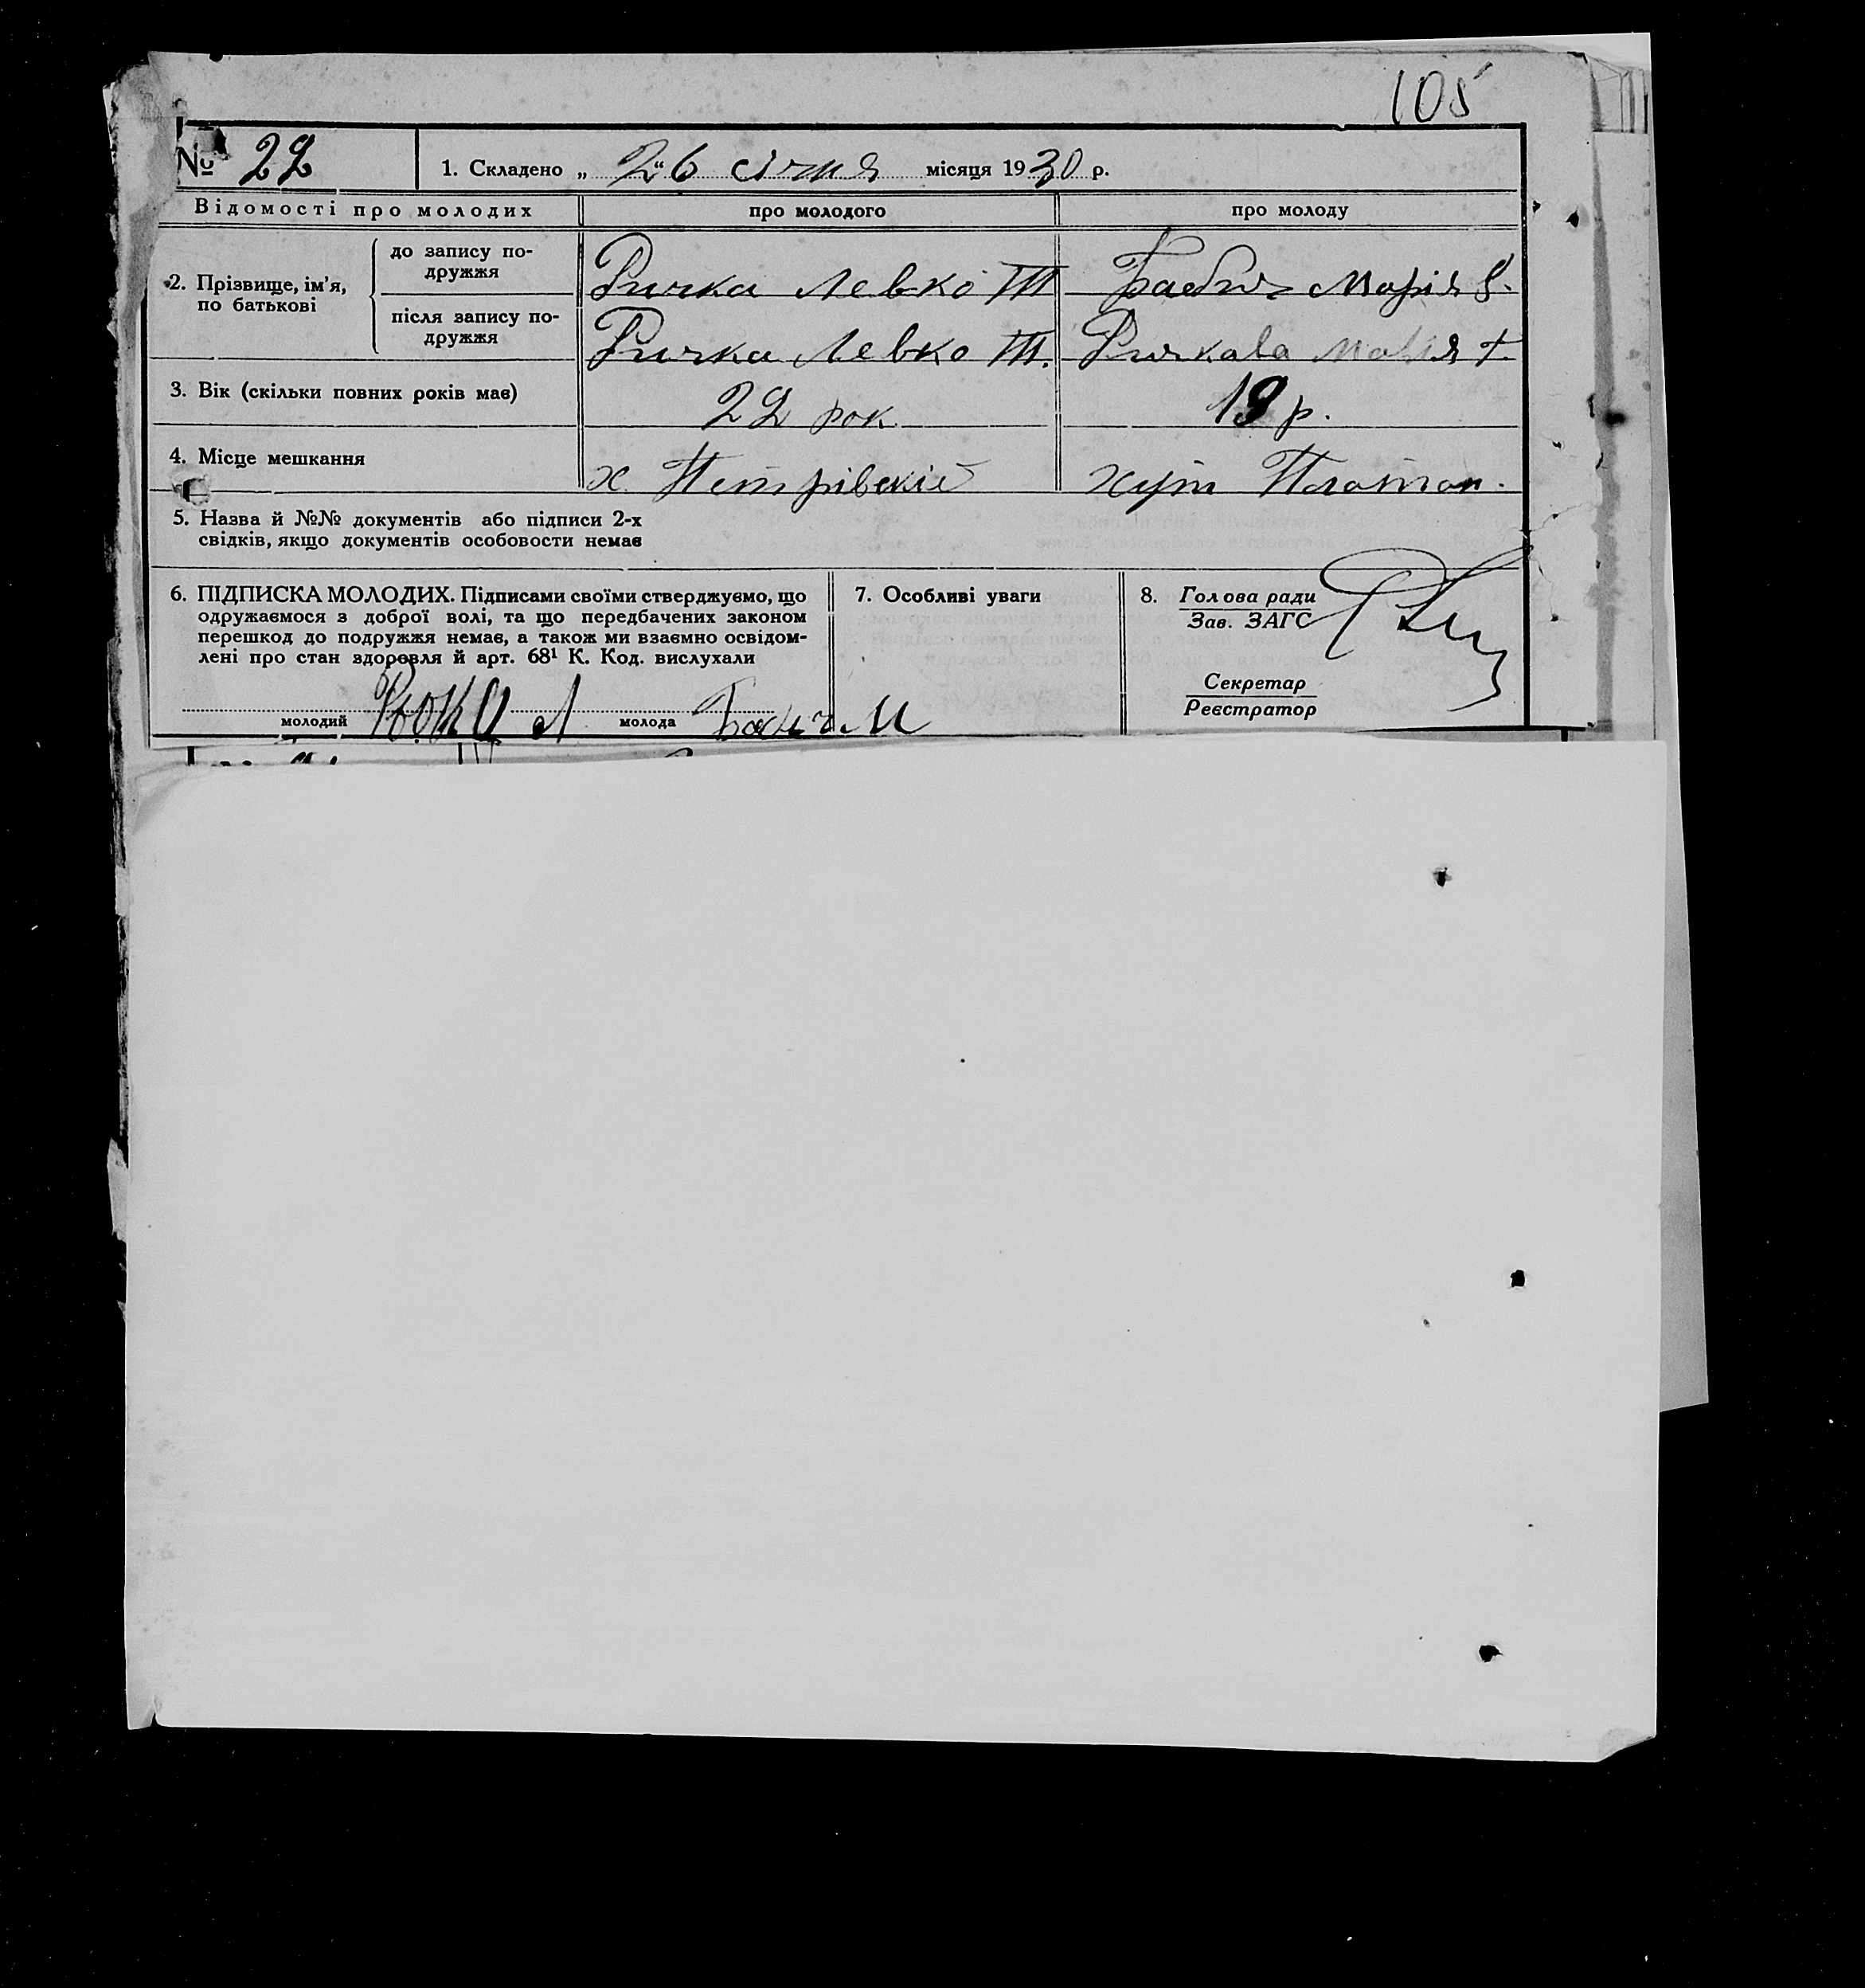 105
№ 22
1. Складено „ 26 “ січня місяця 1930 р.
Відомості про молодих
про молодого
про молоду
2. Прізвище, ім’я, по батькові
до запису подружжя
Ричка Левко Т
Бабич Марія
після запису подружжя
Ричка Левко Т.
Ричкава Марія
3. Вік (скільки повних років має)
22 рок
19 р.
4. Місце мешкання
х. Петрівскій
хут Платон.
5. Назва й №№ документів або підписи 2-х
свідків, якщо документів особовости немає
6. ПІДПИСКА МОЛОДИХ. Підписами своїми стверджуємо, що
одружаємося з доброї волі, та що передбачених законом
перешкод до подружжя немає, а також ми взаємно освідом-
лені про стан здоровля й арт. 68¹ К. Код. вислухали
молодий
молода Бабич М
7. Особливі уваги
8. Голова ради
Зав. ЗАГС
Секретар
Реєстратор